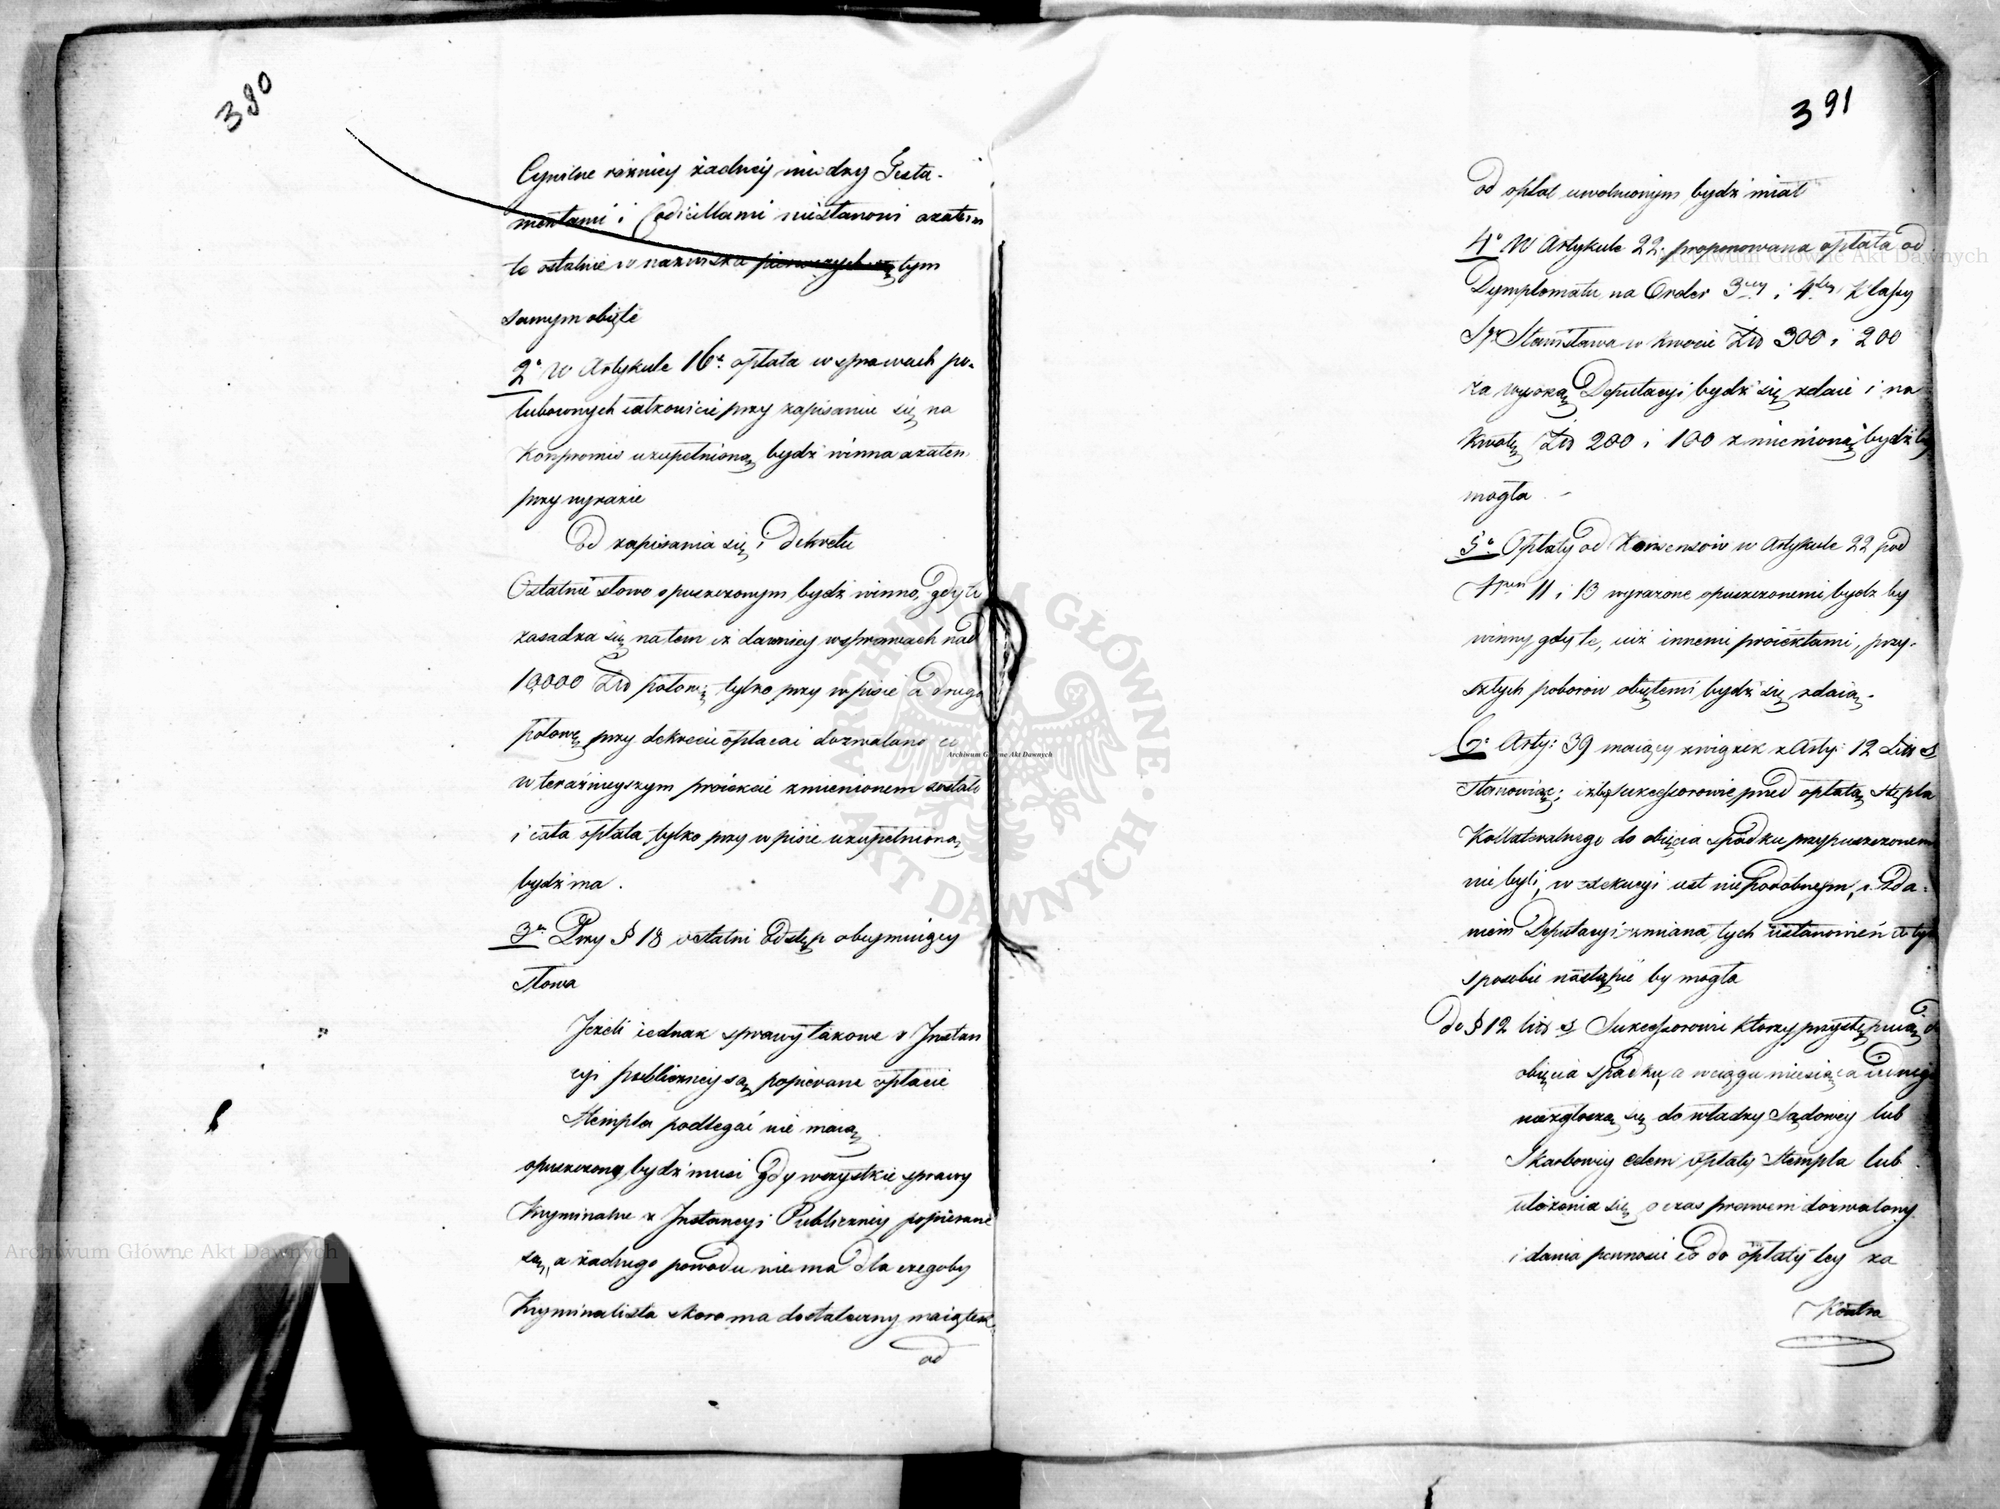 380
Cywilne rożnicy żadney między Testa-
mentami i Codicillami niestanowi azatem
te ostatnie w nazwisku pierwszych są tym
samym obięte
2° W Artykule 16ᵃ opłata w sprawach po-
lubownych całkowicie przy zapisaniu się na
Kompromis uzupełnioną bydź winna azatem
przy wyrazie
Od zapisania się i dekretu
Ostatnie słowo opuszczonym bydź winno, gdyż te
zasadza się na tem iż dawniey w sprawach nad
10,000 Złp połowę tylko przy wpisie a drugą
połowę przy dekrecie opłacać dozwalano co
w teraźnieyszym proiekcie zmienionem zostało
i cała opłata tylko przy wpisie uzupełnioną
bydź ma.
3° Przy § 18 ostatni Odstęp obeymuiący
Słowa
Jeżeli iednak sprawy takowe z Instan
cyi publiczney są popierane opłacie
Stempla podlegać nie maią
opuszczony bydź musi Gdy wszystkie sprawy
Kryminalne z Instancyi Publiczney popierane
są, a żadnego powodu nie ma Dla czegoby
Kryminalista skoro ma dostateczny maiątek
od
391
od opłat uwolnionym bydź miał
4° W Artykule 22. proponowana opłata od
Dymplomatu na Order 3ciey i 4tey Klassy
Sgo Stanisława w kwocie Złp 300 i 200
za wysoką Deputacyi bydź się zdaie i na
kwotę Złp 200 i 100 zmienioną bydź by
mogła
5° Opłaty od Konsensów w Artykule 22 pod
Nrem 11 i 13 wyrażone opuszczonemi bydź by
winny gdy te, iuż innemi proiektami, przy-
szłych poborów obiętemi bydź się zdaią.
6° Arty: 39 maiący związek z Arty: 12 Litt s
Stanowiąc; iżby Sukcessorowie przed opłatą Stępla
Kollateralnego do obięcia spadku przypuszczonemi
nie byli, w exekucyi iest niepodobnym, i Zda-
niem Deputacyi zmiana tych ustanowień w tym
sposobie nastąpić by mogła
Do § 12 litt s Sukcessorowie którzy przystępuią do
obięcia Spadku, a w ciągu miesiąca iednego
niezgłoszą się do władzy Sądowey lub
Skarbowey celem opłaty Stempla lub
ułożenia się o czas prawem dozwalony
i dania pewności co do opłaty tey za
Kontra
Archiwum Główne Akt Dawnych
Archiwum Główne Akt Dawnych
Archiwum Główne Akt Dawnych
ARCHIWUM GŁÓWNE · AKT DAWNYCH ·